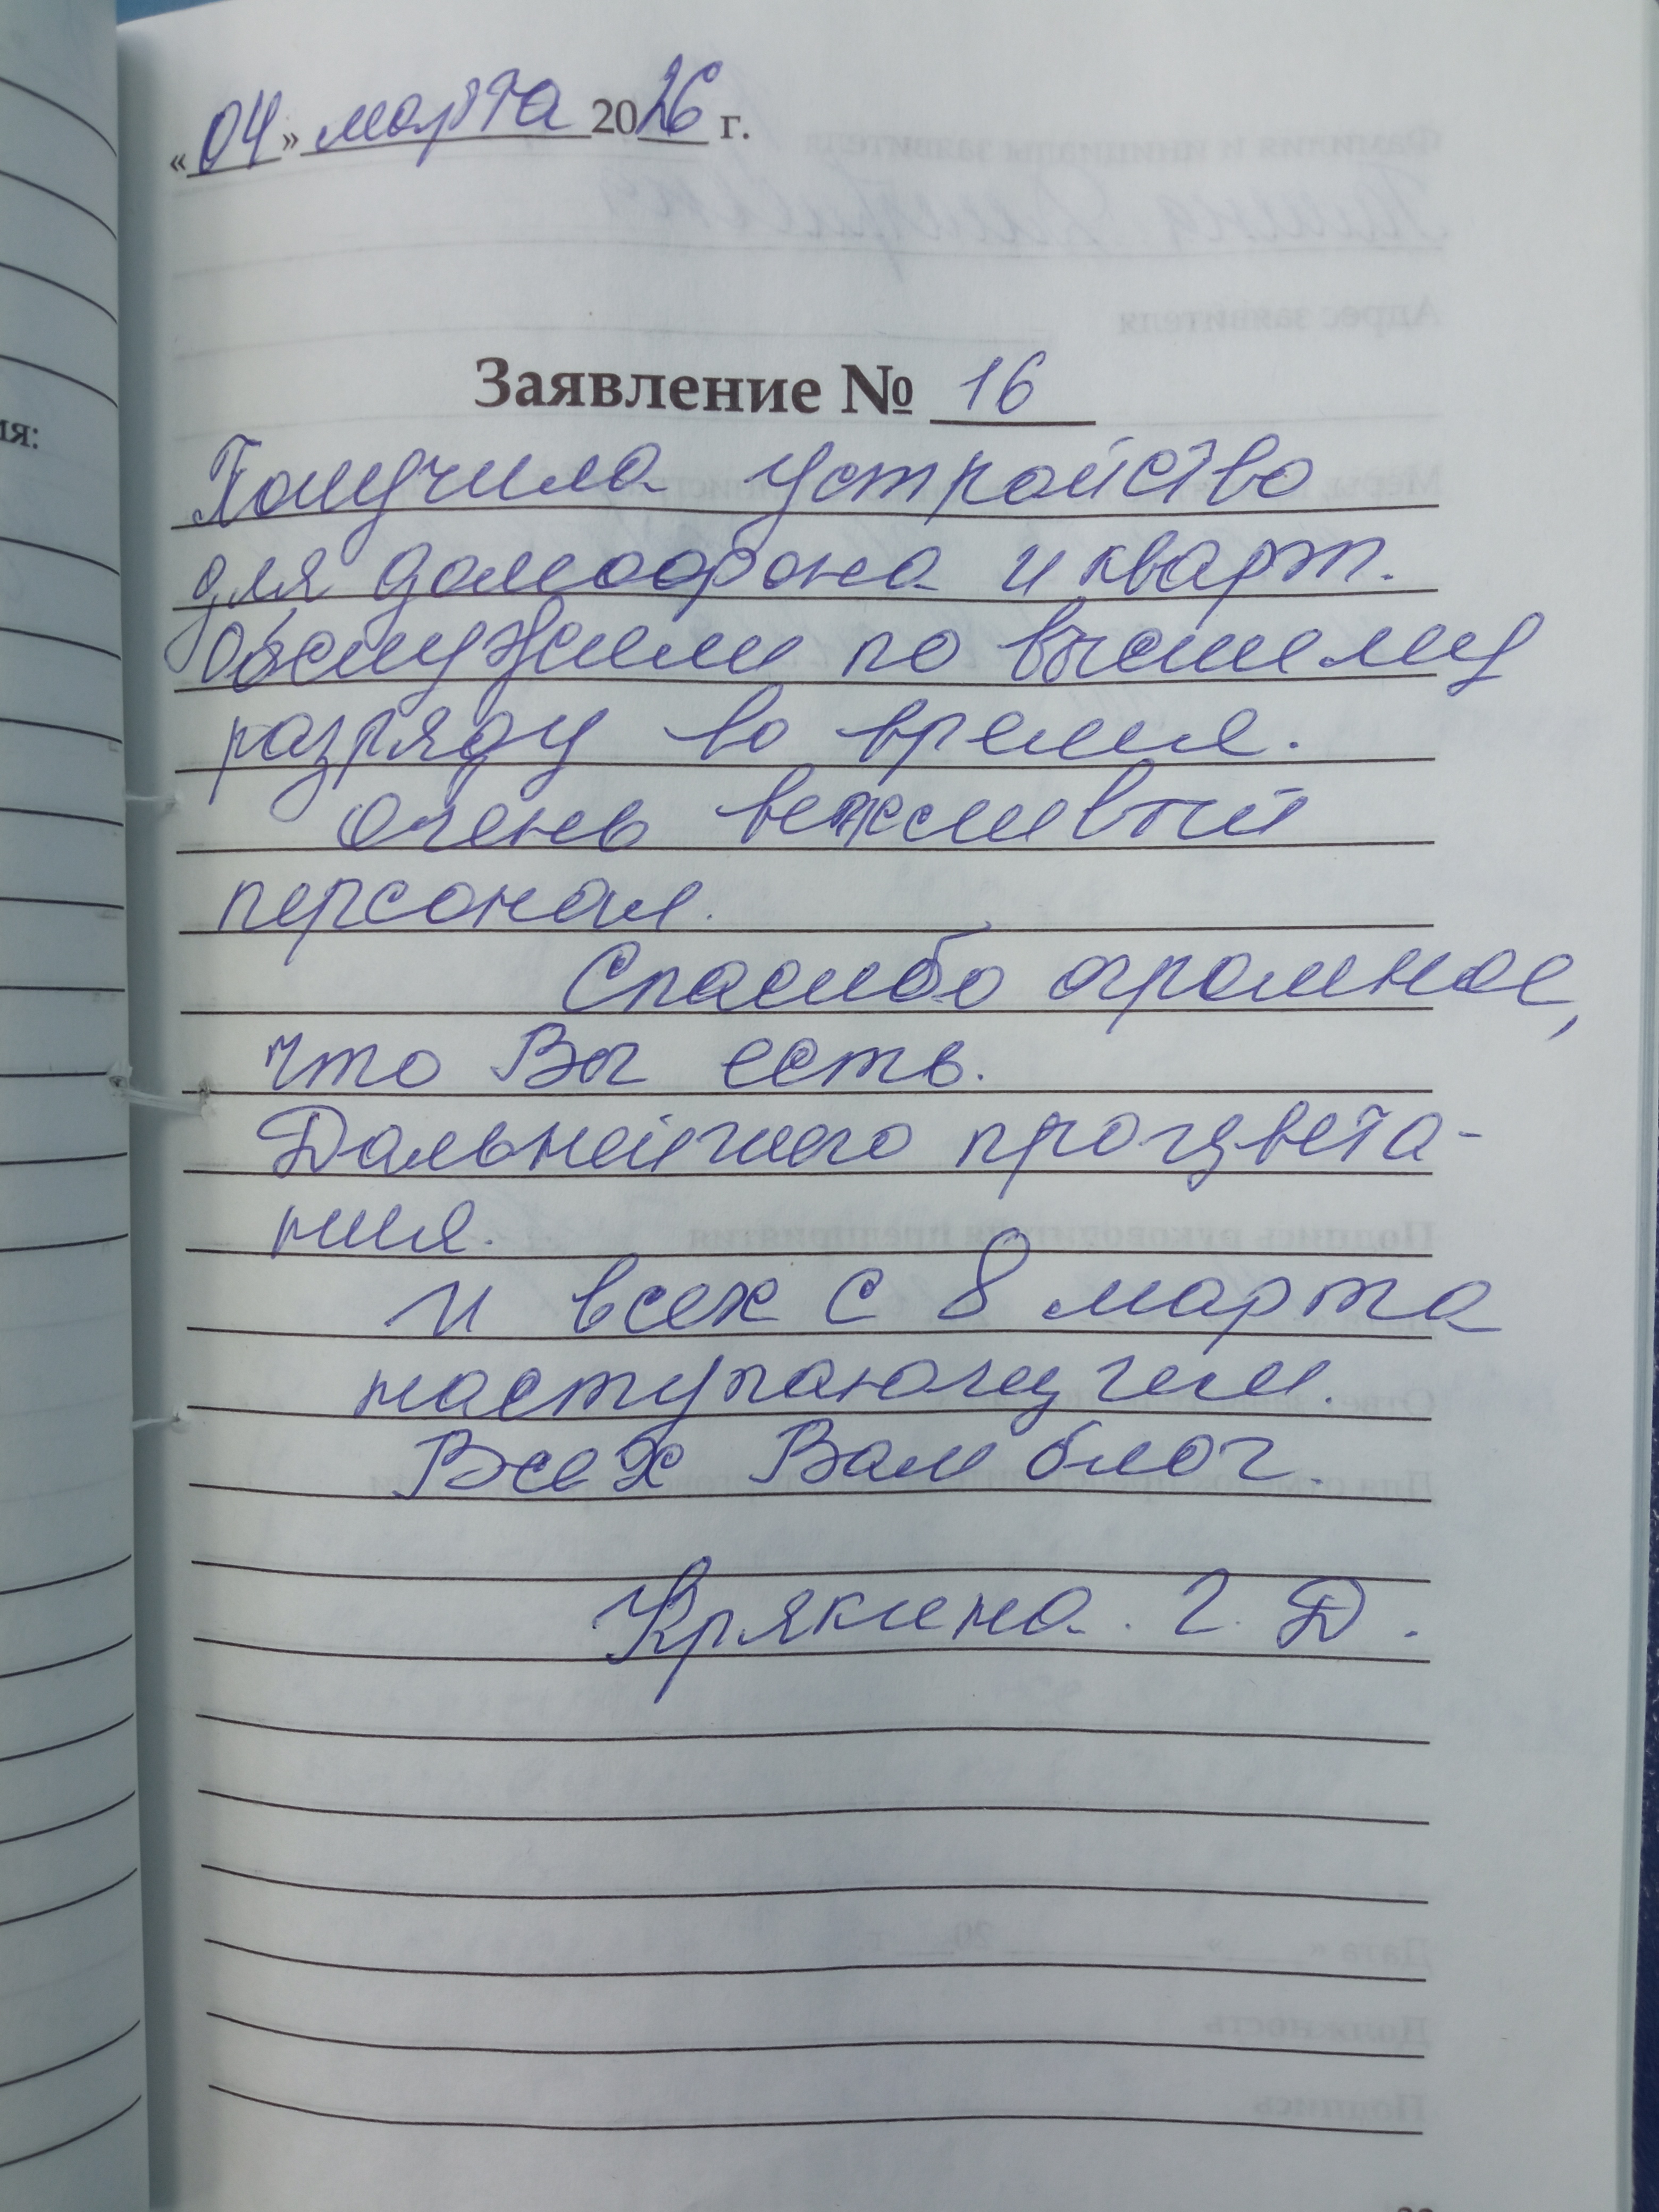 «04» марта 2026 г.
Заявление № 16
Получила устройство
для домофона и кварт.
Обслужили по высшему
разряду во время.
очень вежливый
персонал.
Спасибо огромное,
что Вы есть.
Дальнейшего процвета-
ния.
и всех с 8 марта
наступающим.
Всех Вам благ.
Крякина. Г. Д.